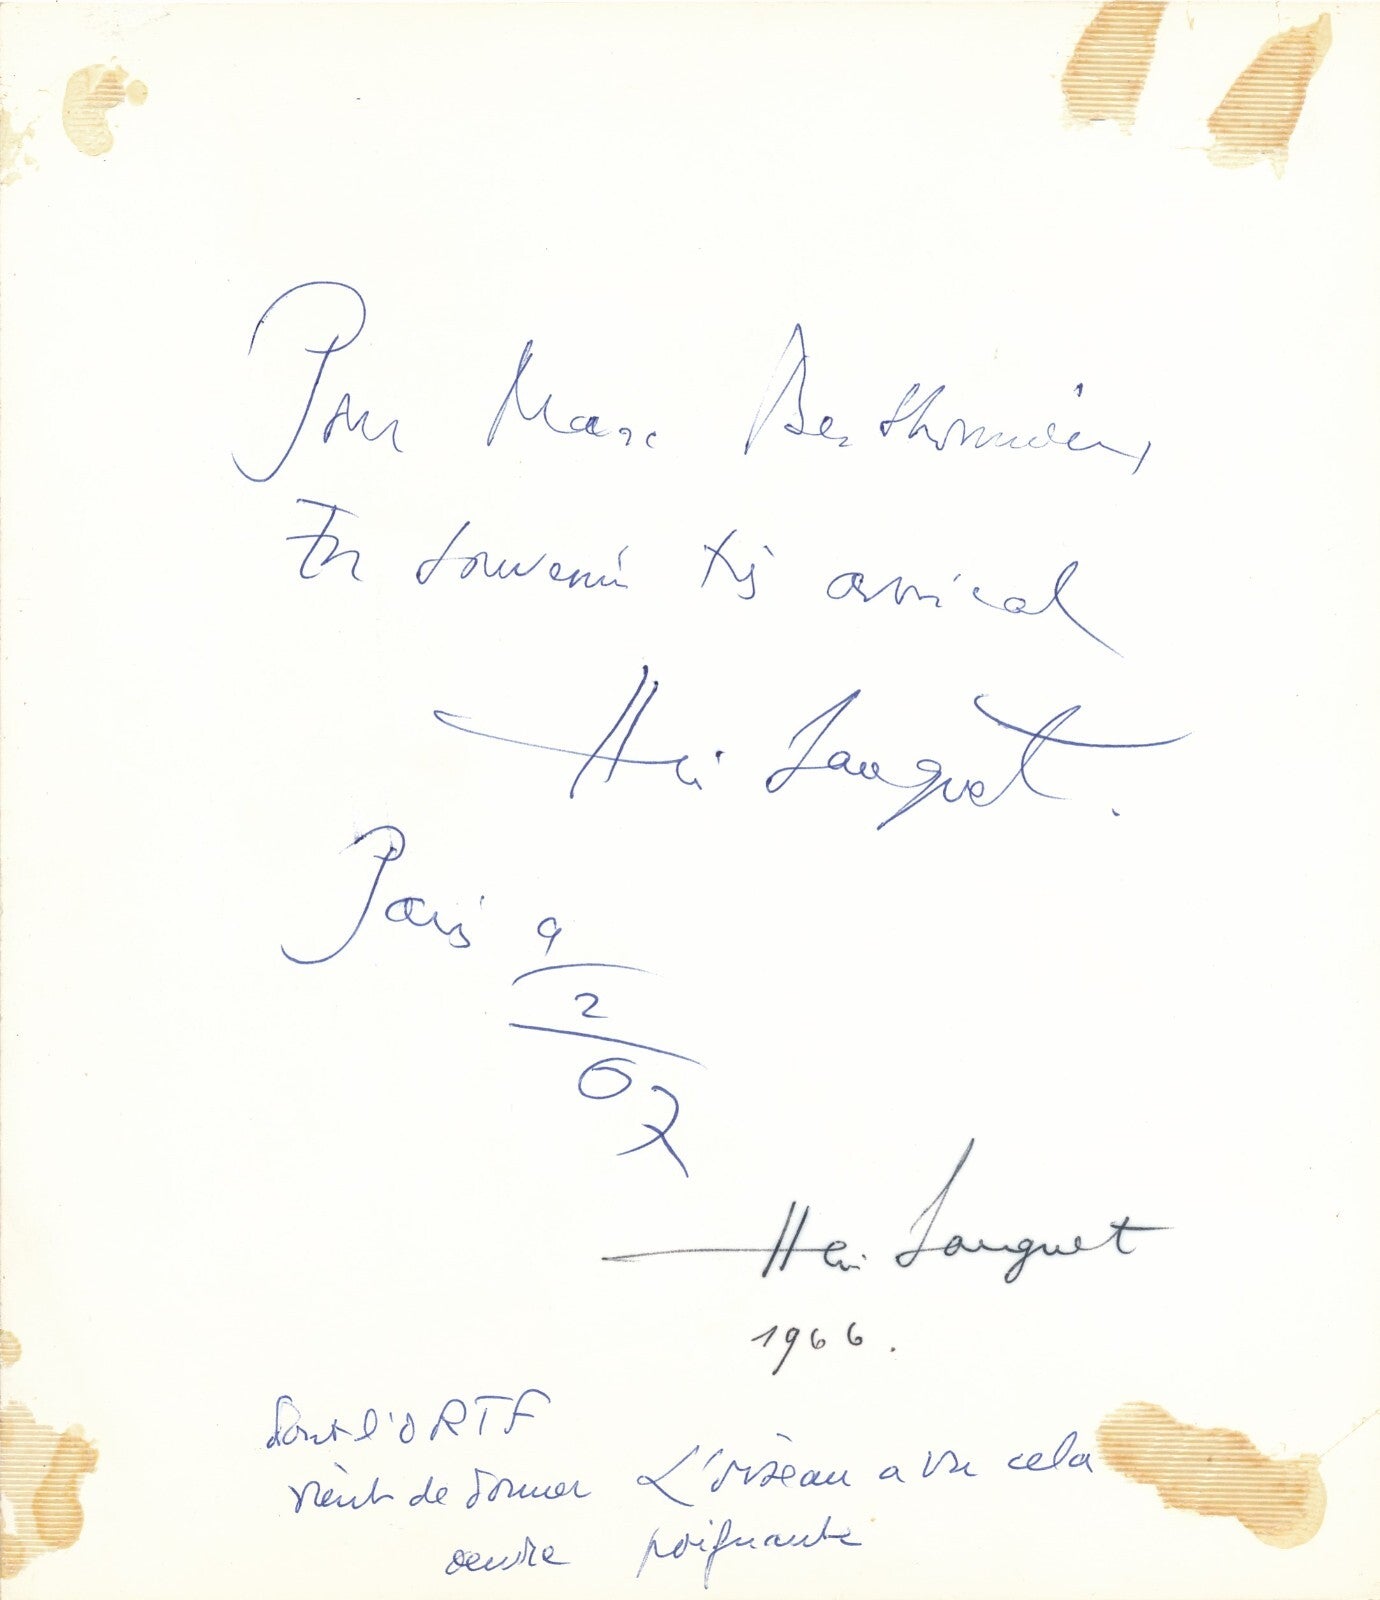 Pour Marc Berthomieu,
En souvenir très amical
Henri Sauguet.
Paris 9
2
67
Henri Sauguet
1966.
dont l'ORTF
vient de donner L'oiseau a vu cela
oeuvre poignante